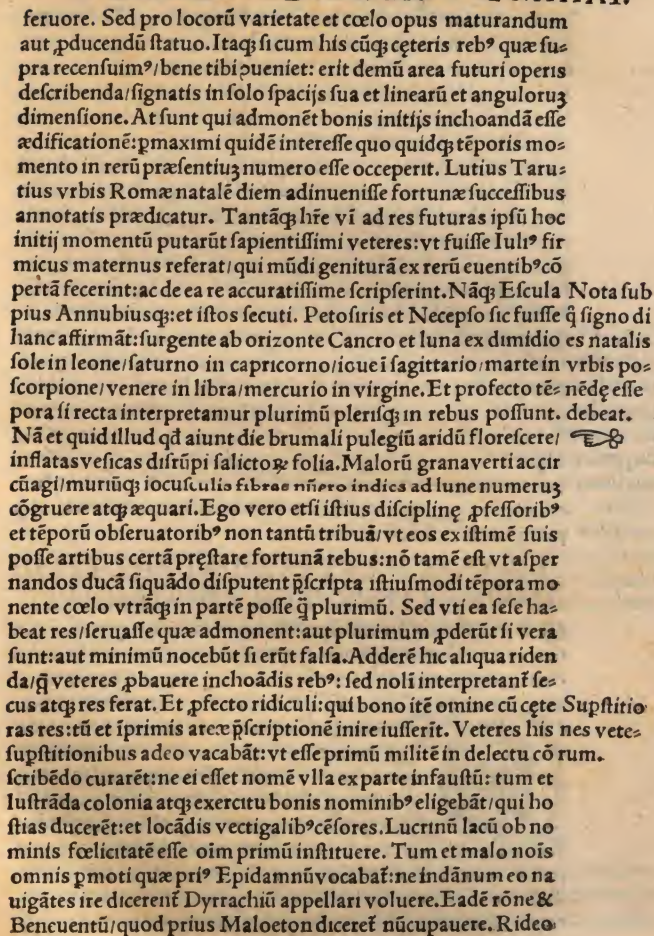 feruore. Sed pro locorũ varietate et cœlo opus maturandum
aut ꝓducendũ ſtatuo. Itaqꝫ ſi cum his cũqꝫ cęteris rebꝰ quæ ſu⸗
pra recenſuimꝰ/bene tibi ꝓueniet: erit demũ area futuri operis
deſcribenda/ſignatis in ſolo ſpacijs ſua et linearũ et anguloruꝫ
dimenſione. At ſunt qui admonẽt bonis initijs inchoandã eſſe
ædificationẽ: ꝑmaximi quidẽ intereſſe quo quidqꝫ tẽporis mo⸗
mento in rerũ præſentiuꝫ numero eſſe occeperit. Lutius Taru⸗
tius vrbis Romæ natalẽ diem adinueniſſe fortunæ ſucceſſibus
annotatis prædicatur. Tantãqꝫ hr̃e vĩ ad res futuras ipſũ hoc
initij momentũ putarũt ſapientiſſimi veteres: vt fuiſſe Iuliꝰ fir
micus maternus referat/qui mũdi geniturã ex rerũ euentibꝰ cõ
pertã fecerint: ac de ea re accuratiſſime ſcripſerint. Nãqꝫ Eſcula Nota ſub
pius Annubiusqꝫ: et iſtos ſecuti. Petoſiris et Necepſo ſic fuiſſe q̃ ſigno di
hanc affirmãt: ſurgente ab orizonte Cancro et luna ex dimidio es natalis
ſole in leone/ſaturno in capricorno/ioue ĩ ſagittario/marte in vrbis po⸗
ſcorpione/venere in libra/mercurio in virgine. Et profecto tẽ⸗ nẽdę eſſe
pora ſi recta interpretamur plurimũ pleriſqꝫ in rebus poſſunt. debeat.
Nã et quid illud qd̃ aiunt die brumali pulegiũ aridũ floreſcere/
inflatas veſicas diſrũpi ſalictoꝝ folia. Malorũ grana verti ac cir
cũagi/muriũqꝫ iocuſculis fibras nũero indice ad lune numeruꝫ
cõgruere atqꝫ æquari. Ego vero etſi iſtius diſciplinę ꝓfeſſoribꝰ
et tẽporũ obſeruatoribꝰ non tantũ tribuã/vt eos exiſtimẽ ſuis
poſſe artibus certã pręſtare fortunã rebus: nõ tamẽ eſt vt aſper
nandos ducã ſiquãdo diſputent p̃ſcripta iſtiuſmodi tẽpora mo
nente cœlo vtrãqꝫ in partẽ poſſe q̃ plurimũ. Sed vti ea ſeſe ha⸗
beat res/ſeruaſſe quæ admonent: aut plurimum ꝓderũt ſi vera
ſunt: aut minimũ nocebũt ſi erũt falſa. Adderẽ hic aliqua riden
da/q̃ veteres ꝓbauere inchoãdis rebꝰ: ſed nolĩ interpretanť ſe⸗
cus atqꝫ res ferat. Et ꝓfecto ridiculi: qui bono itẽ omine cũ cęte Supſtitio
ras res: tũ et ĩprimis areæ p̃ſcriptionẽ inire iuſſerĩt. Veteres his nes vete⸗
ſupſtitionibus adeo vacabãt: vt eſſe primũ militẽ in delectu cõ rum.
ſcribẽdo curarẽt: ne ei eſſet nomẽ vlla ex parte infauſtũ: tum et
luſtrãda colonia atqꝫ exercitu bonis nominibꝰ eligebãt/qui ho
ſtias ducerẽt: et locãdis vectigalibꝰ cẽſores. Lucrinũ lacũ ob no
minis fœlicitatẽ eſſe oĩm primũ inſtituere. Tum et malo noĩs
omnis ꝑmoti quæ priꝰ Epidamnũ vocabať: ne in dãnum eo na
uigãtes ire dicerenť Dyrrachiũ appellari voluere. Eadẽ rõne &
Beneuentũ/quod prius Maloeton diceret̃ nũcupauere. Rideo